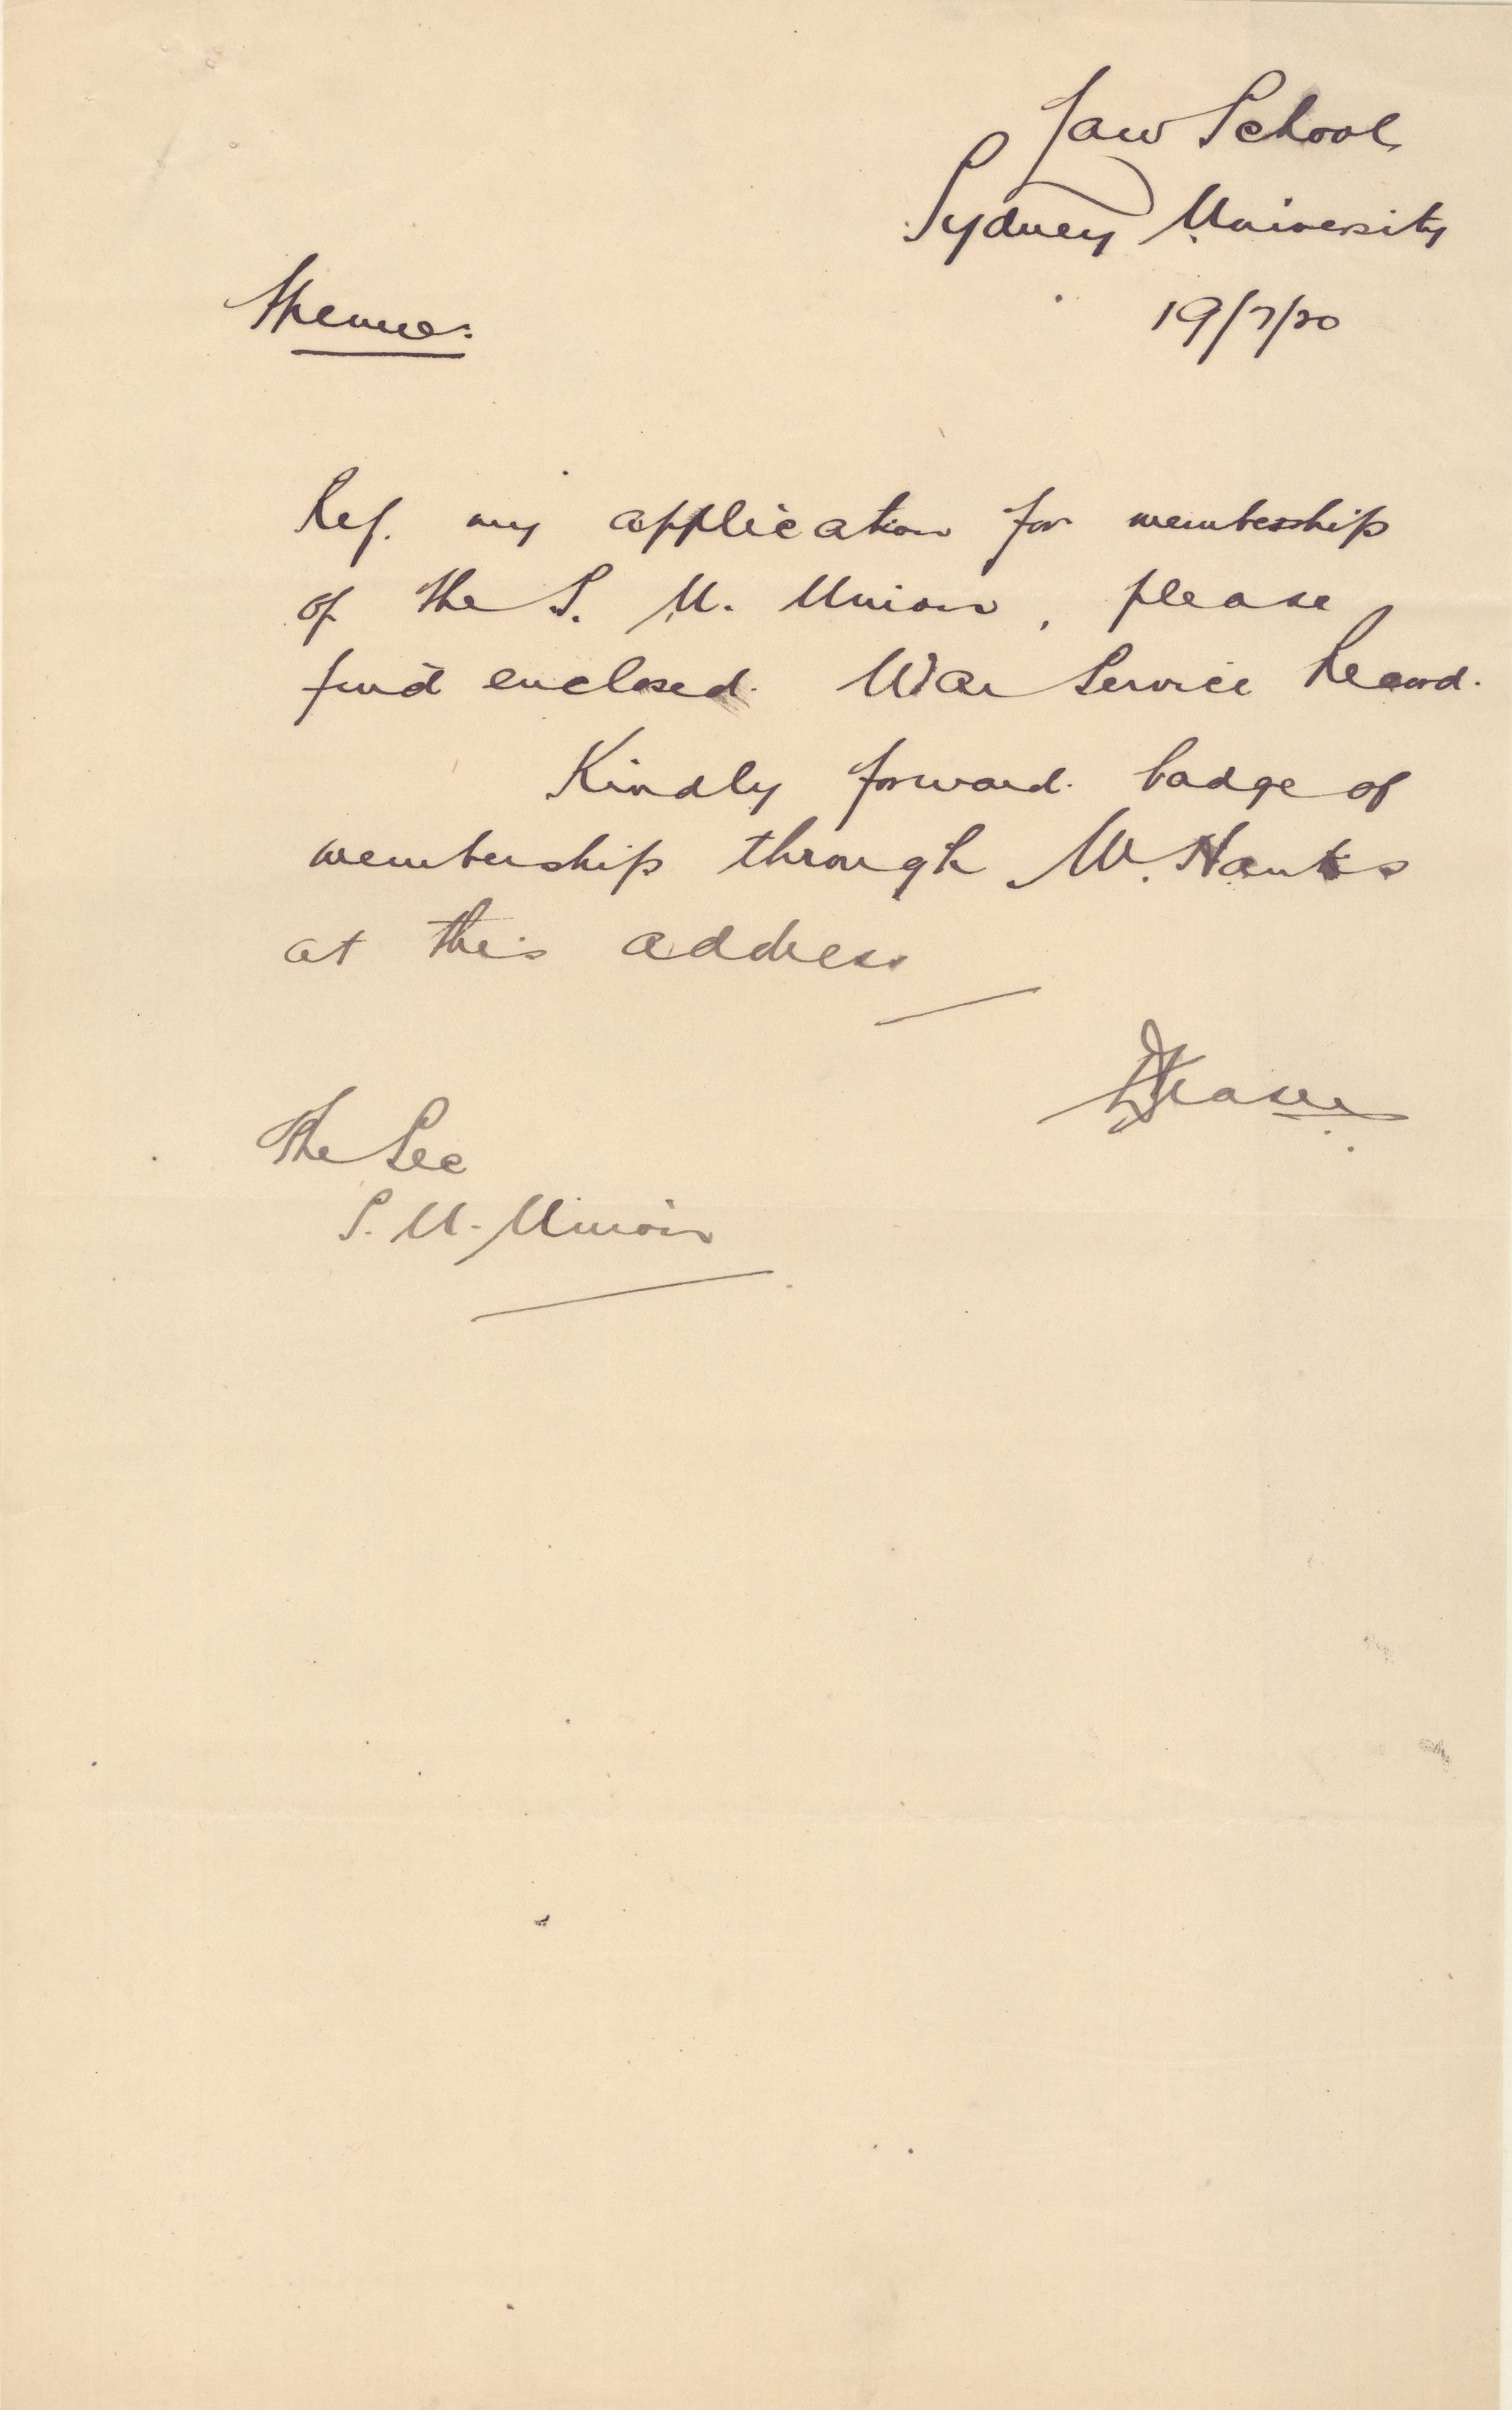 Law School
Sydney University
19/7/20
Memo:
Ref. my application for membership
of the S. U. Union, please
find enclosed. War Service Record.
Kindly forward. badge of
membership through W. Hanks
at this address
Fraser
The Sec
S. U. Union